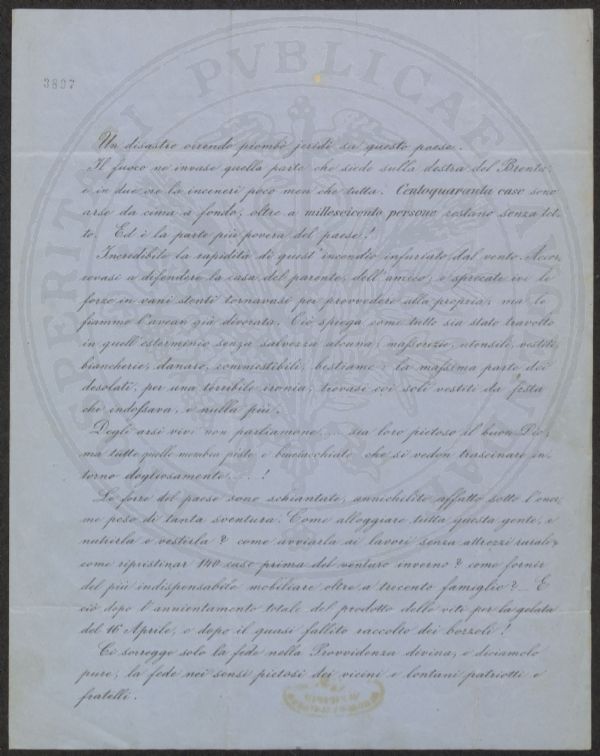 3897
Un disastro orrendo piombò jeridì su questo paese.
Il fuoco ne invase quella parte che siede sulla destra del Brenta,
e in due ore la incenerì poco men che tutta. Centoquaranta case sono
arse da cima a fondo, oltre a milleseicento persone restano senza tet-
to. Ed è la parte più povera del paese!
Incredibile la rapidità di quest'incendio infuriato dal vento. Accor-
revasi a difendere la casa del parente, dell'amico, e sprecate ivi le
forze in vani stenti tornavasi per provvedere alla propria; ma le
fiamme l'avean già divorata. Ciò spiega come tutto sia stato travolto
in quell'esterminio senza salvezza alcuna; masserizie, utensili, vestiti,
biancherie, danaro, commestibili, bestiame: la massima parte dei
desolati, per una terribile ironia, trovasi coi soli vestiti da festa
che indossava, e nulla più.
Degli arsi vivi non parliamone..... sia loro pietoso il buon Dio,
ma tutte quelle membra peste e bruciacchiate che si vedon trascinare in-
torno dogliosamente.....!
Le forze del paese sono schiantate, annichilite affatto sotto l'enor-
me peso di tanta sventura. Come alloggiare tutta questa gente, e
nutrirla e vestirla? come avviarla ai lavori senza attrezzi rurali,
come ripristinar 140 case prima del venturo inverno? come fornir
del più indispensabile mobiliare oltre a trecento famiglie? - E
ciò dopo l'annientamento totale del prodotto delle viti per la gelata
del 16 Aprile, e dopo il quasi fallito raccolto dei bozzoli!
Ci sorregge solo la fede nella Provvidenza divina, e diciamolo
pure, la fede nei sensi pietosi dei vicini e lontani patriotti e
fratelli.